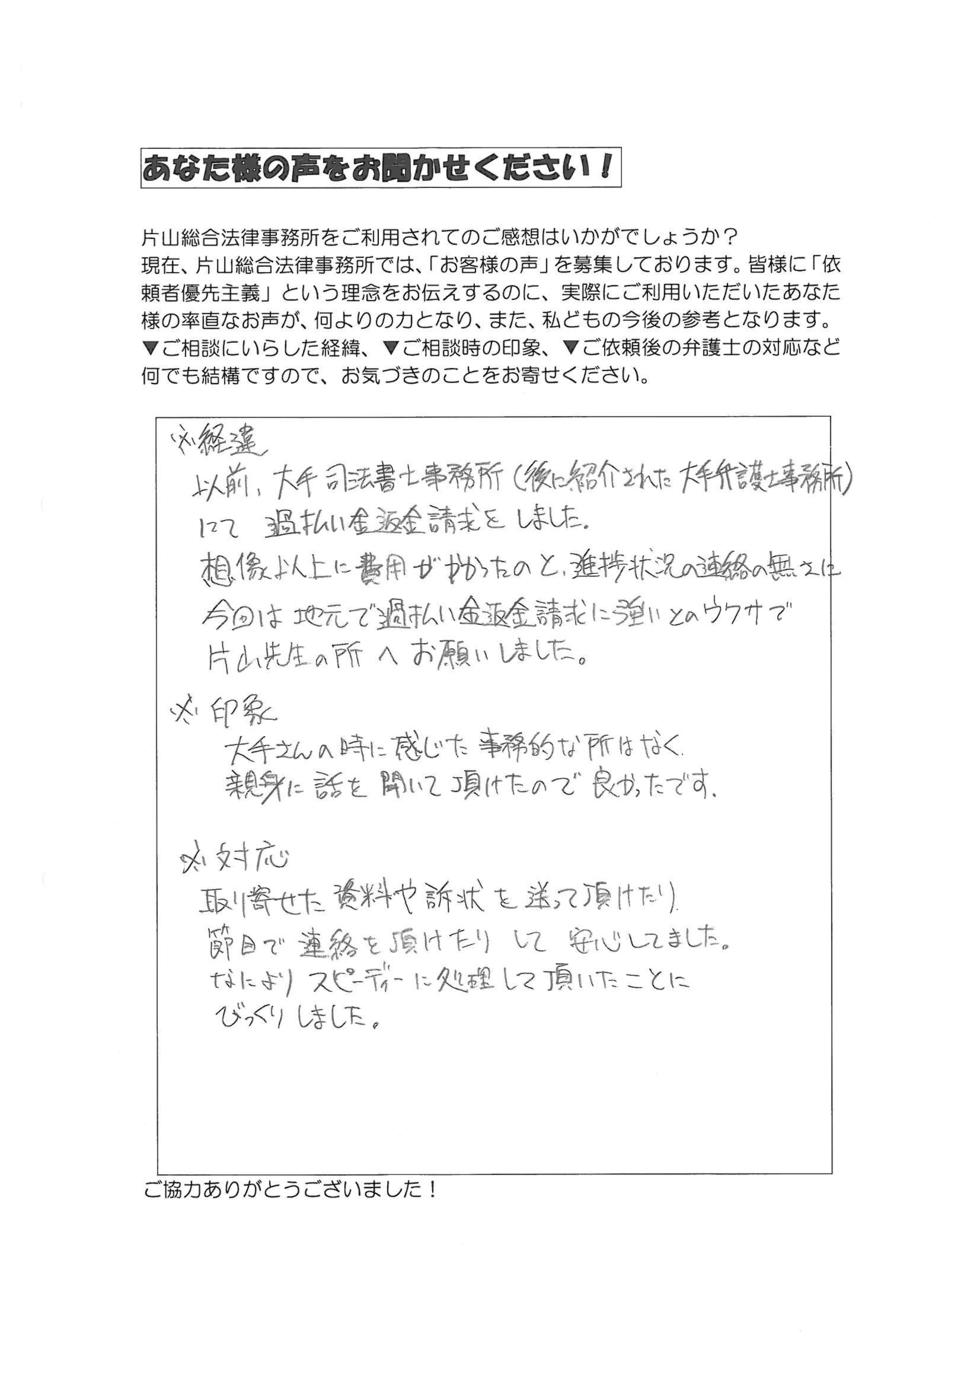 あなた様の声をお聞かせください！
片山総合法律事務所をご利用されてのご感想はいかがでしょうか？
現在、片山総合法律事務所では、「お客様の声」を募集しております。皆様に「依
頼者優先主義」という理念をお伝えするのに、実際にご利用いただいたあなた
様の率直なお声が、何よりの力となり、また、私どもの今後の参考となります。
▼ご相談にいらした経緯、▼ご相談時の印象、▼ご依頼後の弁護士の対応など
何でも結構ですので、お気づきのことをお寄せください。
※経違
以前、大手司法書士事務所（後に紹介された大手弁護士事務所）
にて過払い金返金請求をしました。
想像以上に費用がかかったのと、進捗状況の連絡の無さに
今回は地元で過払い金返金請求に強いとのウワサで
片山先生の所へお願いしました。
※印象
大手さんの時に感じた事務的な所はなく、
親身に話を聞いて頂けたので良かったです。
※対応
取り寄せた資料や訴状を送って頂けたり
節目で連絡を頂けたりして安心してました。
なによりスピーディーに処理して頂いたことに
びっくりしました。
ご協力ありがとうございました！